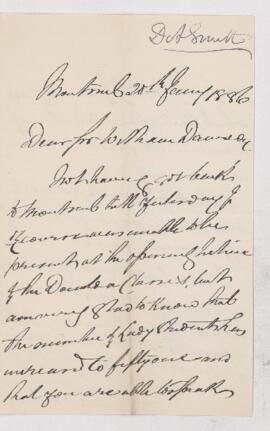 D A Smith
Montreal 20th Jany 1886
Dear Sir William Dawson,
Not having got back
to Montreal till yesterday I
of course was unable to be
present at the opening lecture
of the Donalda Classes, but
am very glad to know that
the number of Lady Students has
increased to fifty one and
that you are able to speak